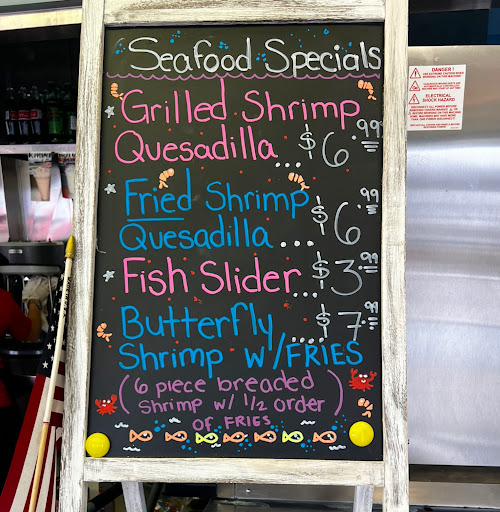 Seafood Specials
Grilled Shrimp
Quesadilla... $6.99
Fried Shrimp
Quesadilla... $6.99
Fish Slider... $3.99
Butterfly... $7.99
Shrimp w/FRIES
(6 piece breaded
Shrimp w/ 1/2 order
of FRIES)
DANGER!
ELECTRICAL
SHOCK HAZARD